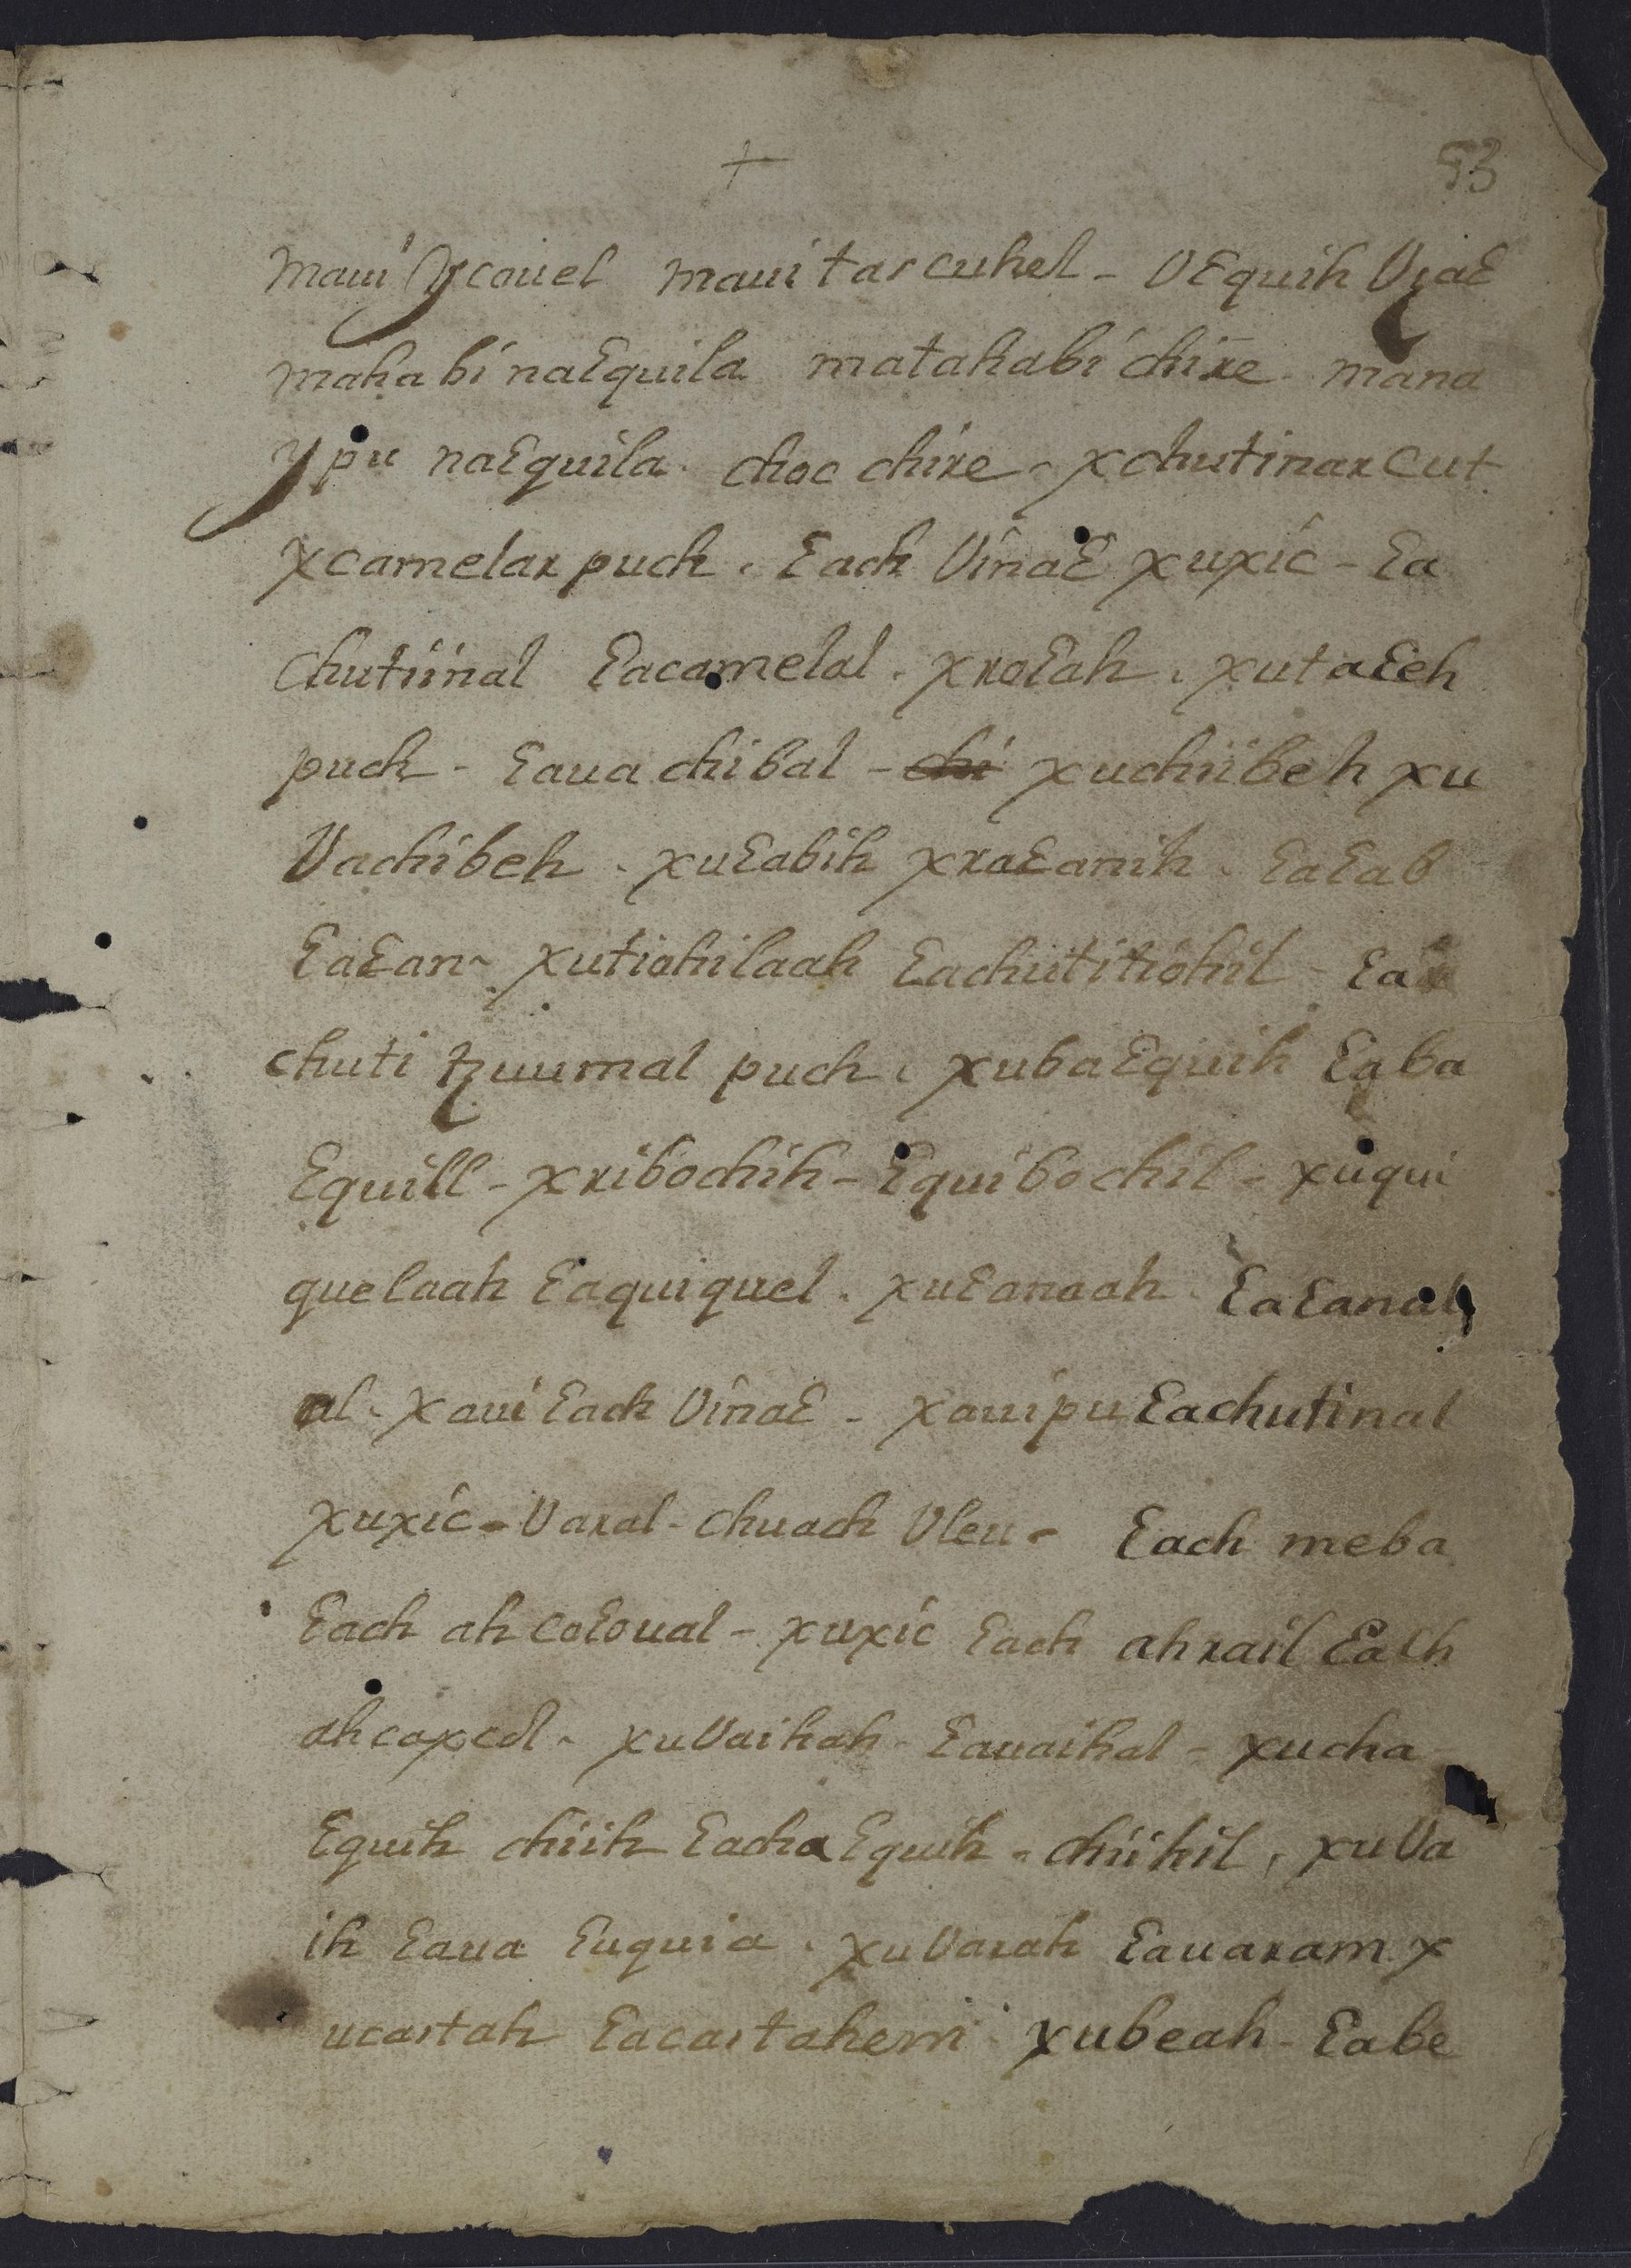 +
93
maui ycouel maui tascuhel - Vꜫquih Vꜫaꜫ
mahabi naꜫquila matahabi chire mana
ypu naꜫquila. choc chire. xchutinarcut
xcamelar puch. ꜫach Vinaꜫ xuxic - ꜫa
chutiinal ꜫacamelal. xraꜫah. xutaꜫeh
puch - ꜫaua chibal - chi xuchiibeh xu
Vachibeh. xuꜫabih xraꜫanih. ꜫaꜫab
ꜫaꜫan. xutiohilaah ꜫachutitiohil - ꜫa
chuti tzuumal puch. xubaꜫquih ꜫaba
ꜫquill - xribochih - ꜫquibochil - xuqui
quelaah ꜫaquiquel. xuꜫanaah. ꜫaꜫanal
al. xaui ꜫach Vinaꜫ - xauipu ꜫachutinal
xuxic - Varal - chuach Vleu - ꜫach meba
ꜫach ah coꜫoual - xuxic ꜫach ahrail ꜫach
ahcaxcol. xuVaihah - ꜫauaihal - xucha
ꜫquih chiih ꜫacha ꜫquih - chiihil, xuVa
ih ꜫaua ꜫuquia. xuVarah ꜫauaram x
ucastah ꜫacastahem xubeah - ꜫabe